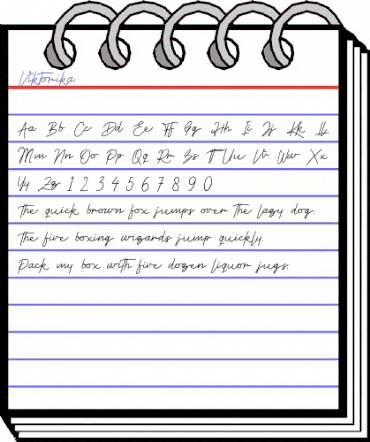 Viktorika
Aa Bb Cc Dd Ee Ff Gg Hh Ii Jj Kk Ll
Mm Nn Oo Pp Qq Rr Ss Tt Uu Vv Ww Xx
Yy Zz 1 2 3 4 5 6 7 8 9 0
The quick brown fox jumps over the lazy dog.
The five boxing wizards jump quickly.
Pack my box with five dozen liquor jugs.